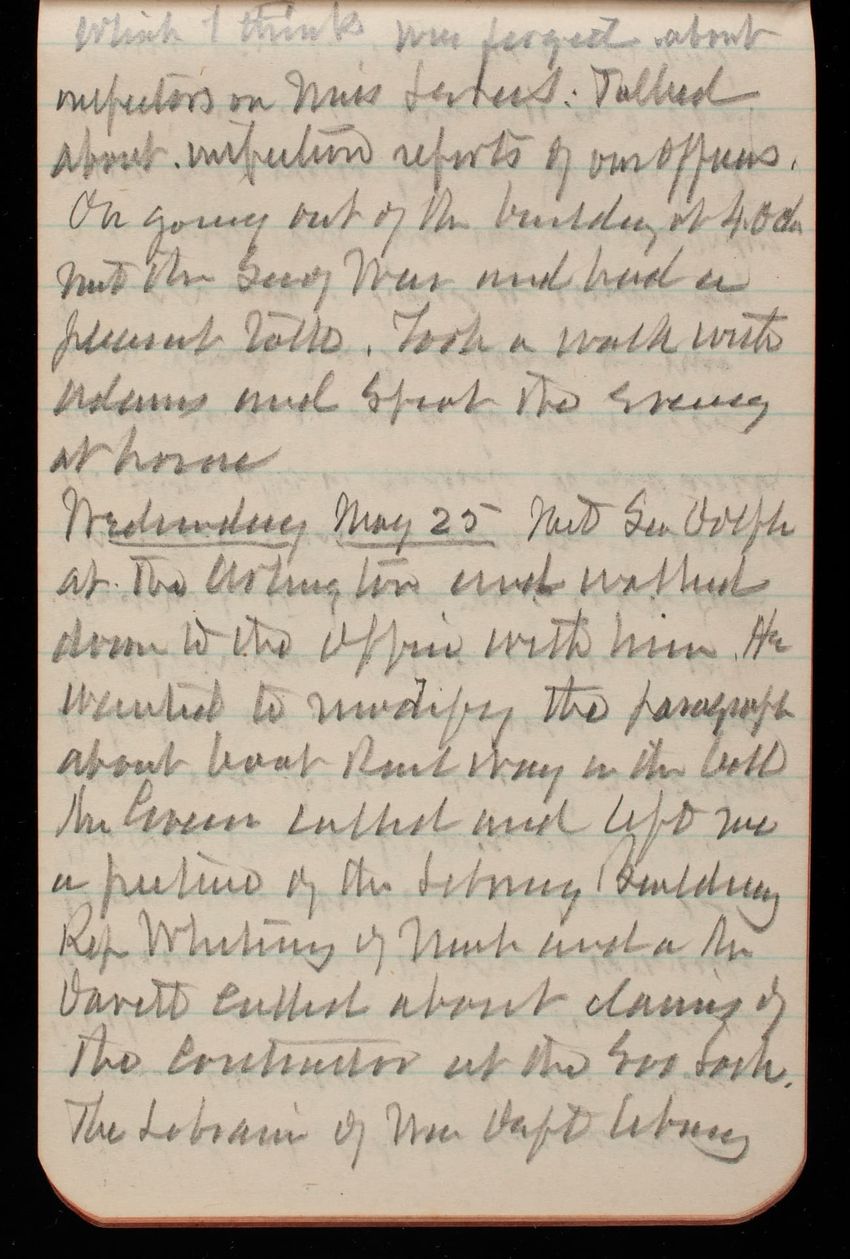 which I think was forgot about
inspectors on Miss Levees. Talked
about inspection reports of our officers.
On going out of the building at 4.0clk
met the Secy War and had a
pleasant talk. Took a walk with
Adams and spent the evening
at home
Wednesday May 25 Met Sen Dolph
at the Arlington and walked
down to the office with him. He
wanted to modify the paragraph
about boat Railway in the bill
Mr Green called and left me
a picture of the Library Building
Rep Whiting of Mich and a Mr
Davett called about claims of
the Contractor at the Soo Lock.
The Librarian of War Dept library